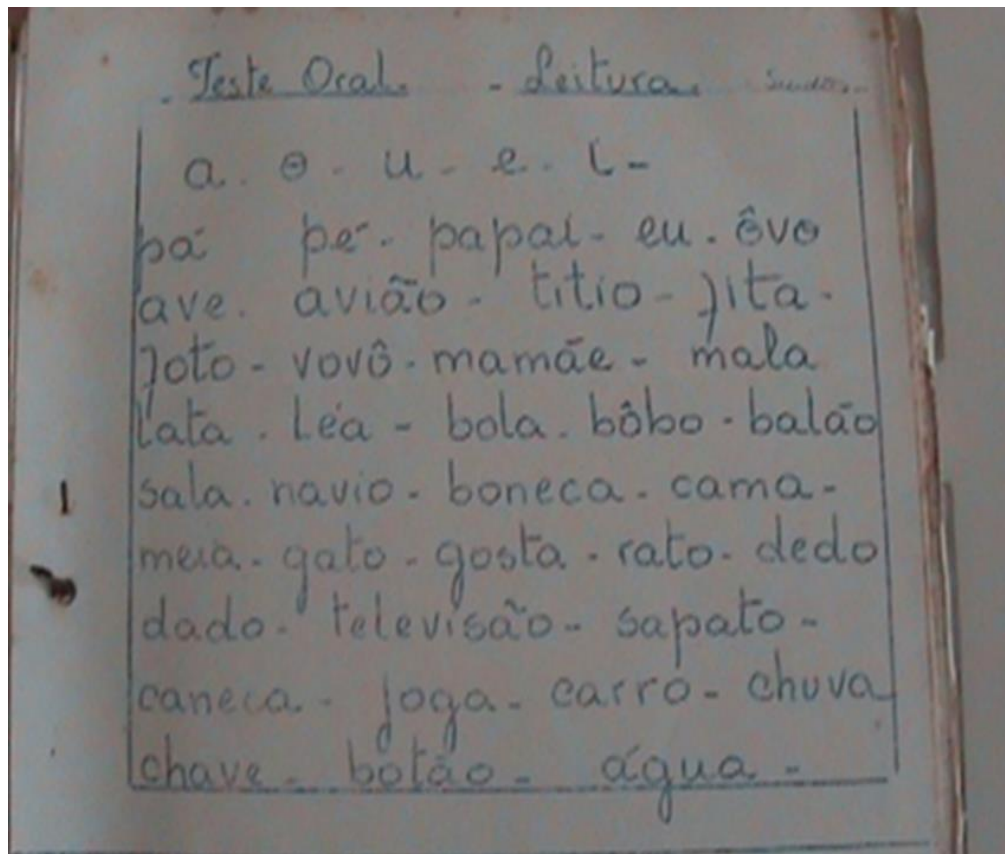 - Teste Oral. - Leitura.
a. o - u - e. i -
pá pé - papai - eu. ôvo
ave. avião - titio - fita -
foto - vovô - mamãe - mala
lata. Léa - bola. bôbo - balão
sala. navio - boneca - cama -
meia - gato - gosta - rato - dedo
dado - televisão - sapato -
caneca - joga - carro - chuva
chave - botão - água -